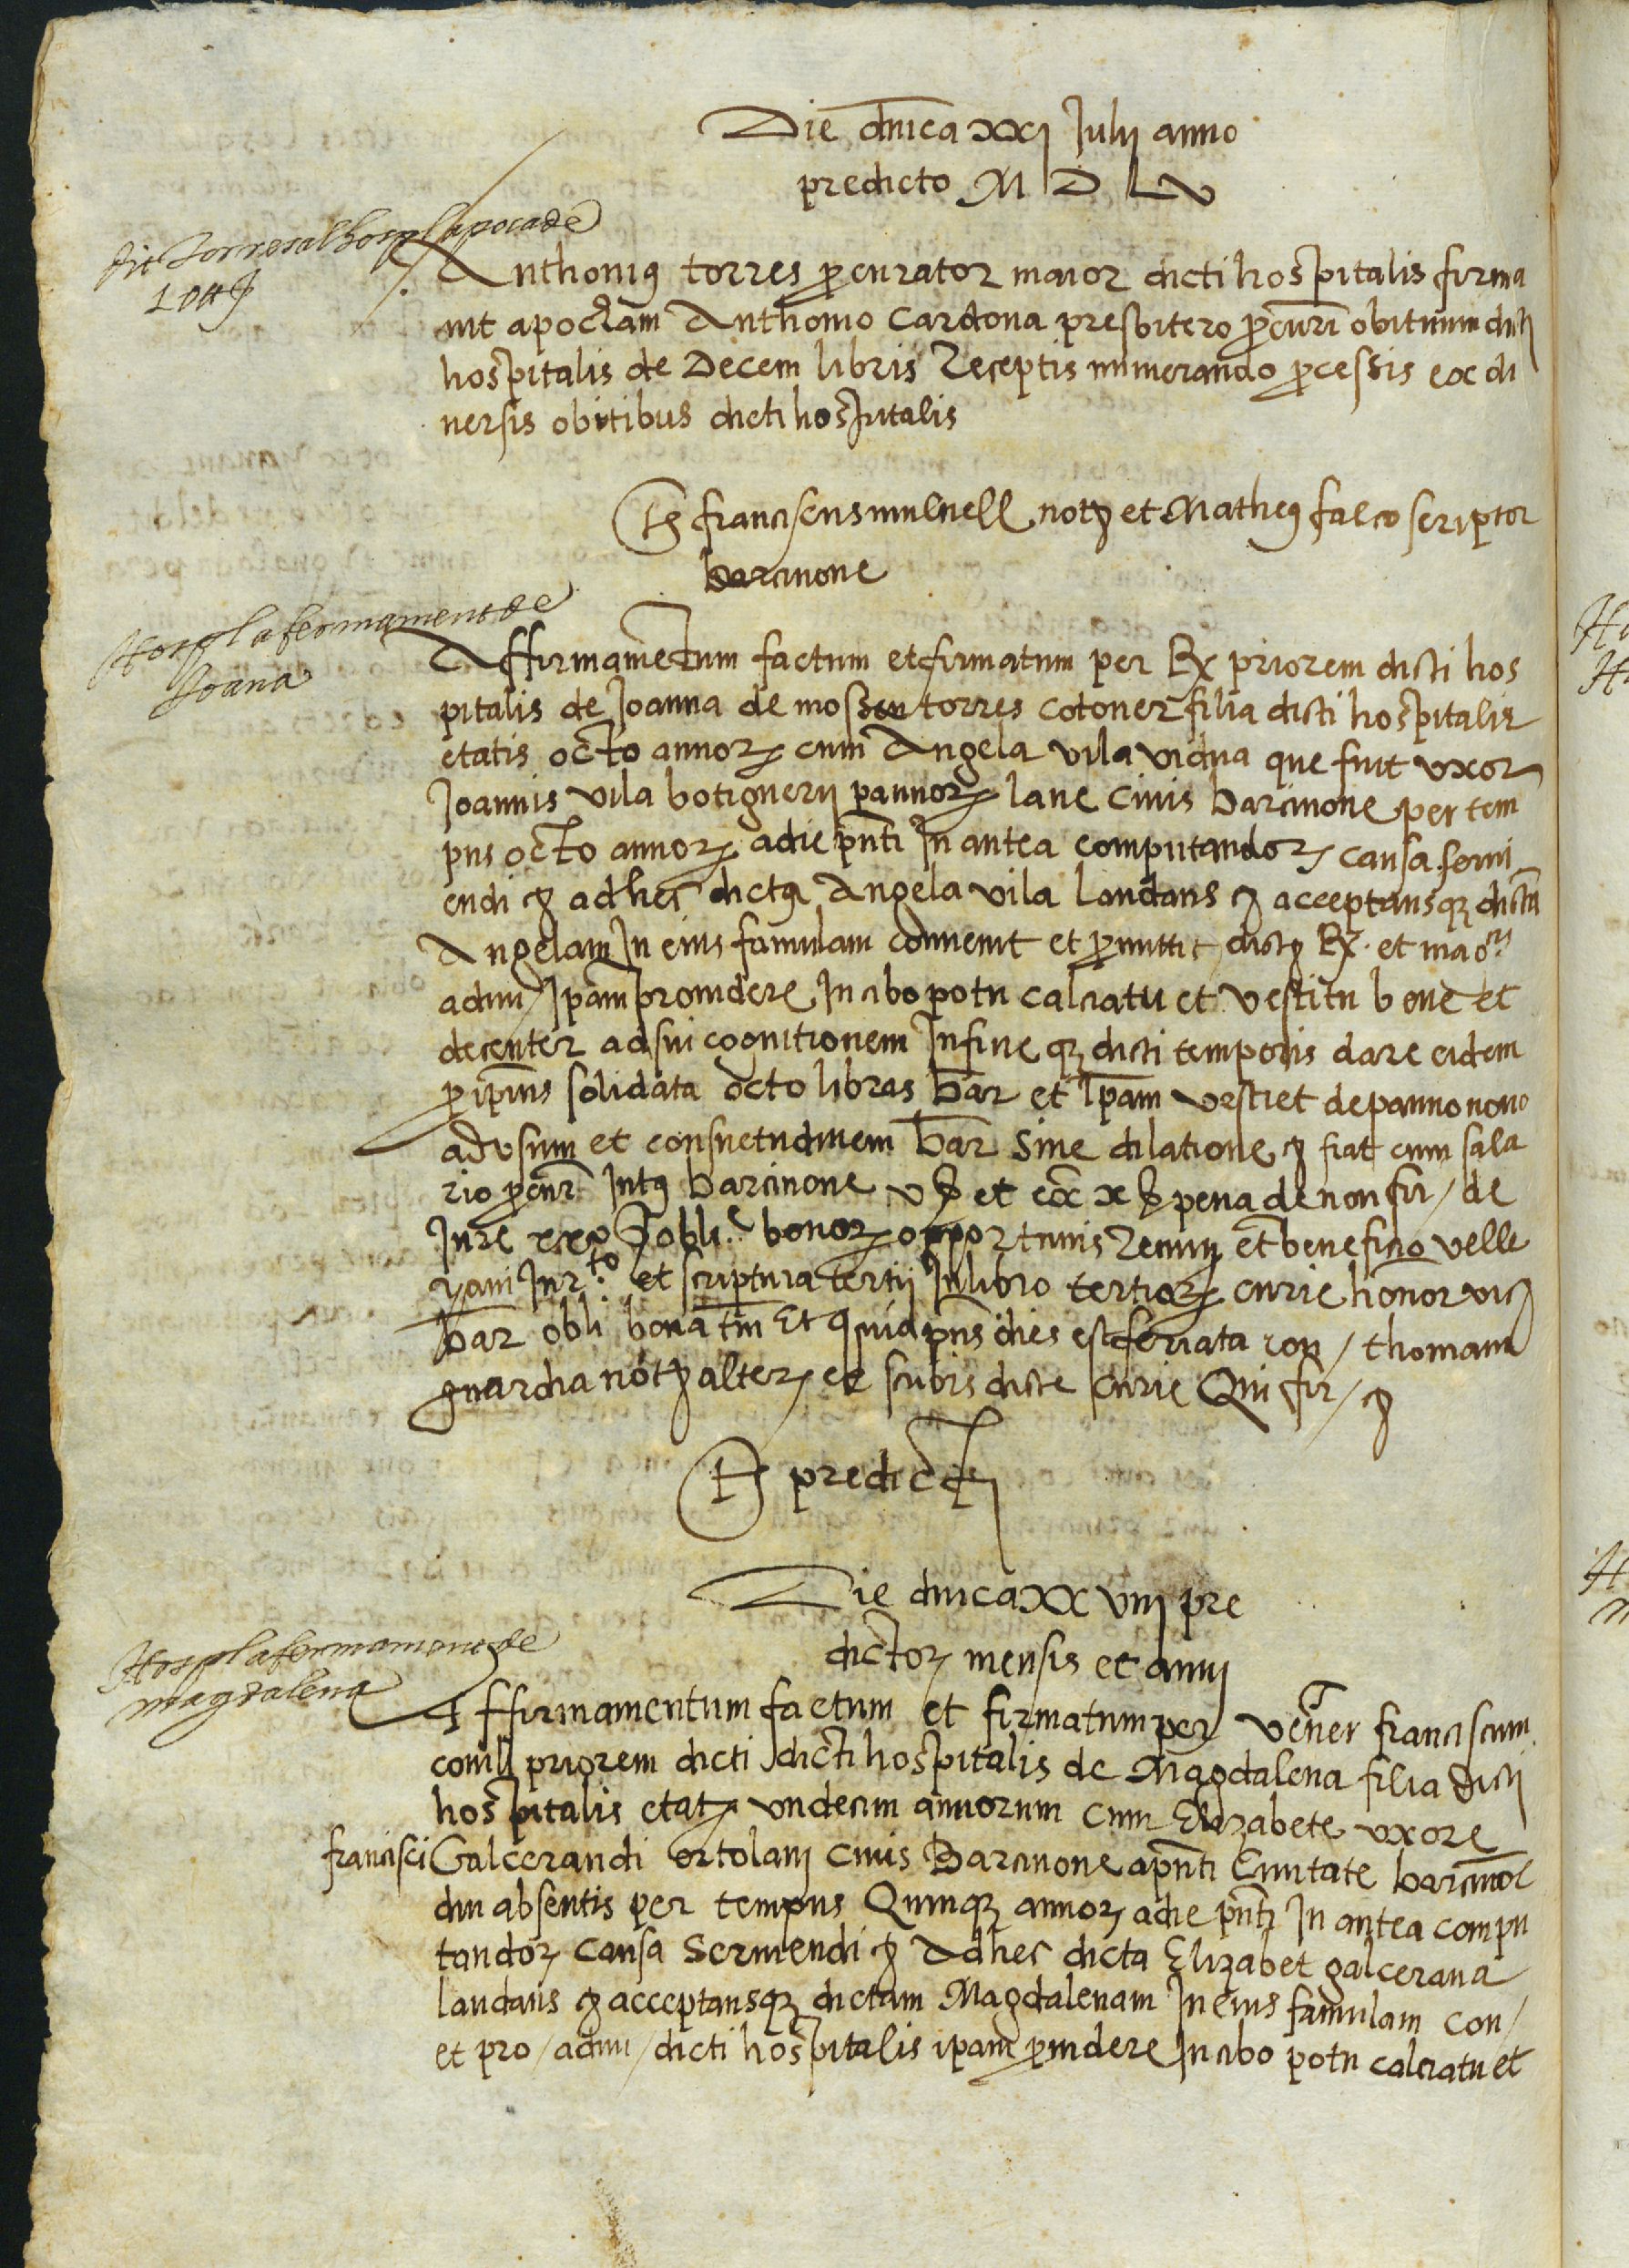 Die dnica xxj Julij anno
predicto M D L v
dit Torres al hospl apoca de
10 ll
Anthonius torres procurator maior dicti hospitalis firma
vit apocham Anthonio Cardona presbitero procuri obituum dicti
hospitalis de Decem libris Receptis numerando processis ex di
versis obitibus dicti hospitalis
Ts franciscus mulnell not et Matheus falco scriptor
barcinone
Hospl afermament de
Joana
Affirmamentum factum et firmatum per Rx priorem dicti hos
pitalis de Joanna de mossen torres cotoner filia dicti hospitalis
etatis octo annorum cum Angela vila vidua que fuit vxor
Joannis vila botiguerii pannorum lane civis barcinone per tem
pus octo annorum a die pnti In antea computandorum causa servi
endi etc ad hec dicta Angela vila laudans etc acceptansque dictam
Angelam In eius famulam convenit et promittit dictis Rx et
admi / Ipam providere In cibo potu calciatu et vestitu bene et
decenter ad sui cognitionem In fine que dicti temporis dare eidem
pro ipius solidata octo libras bar et Ipam vestiet de panno novo
ad vsum et consuetudinem bar Sine dilatione etc fiat cum sala
rio procur intus barcinone v s et ex x s pena de non fir / de
Jure obli bonorum opportunis Renun et beneficio velle
yani Jurto et scriptura tertii In libro tertiorum curie honor vic
bar obli bona tm Et quia pns dies est feriata / thomam
guardia not alterum ex scribis dicte curie Qui fir / etc
Ts predicti
Die dnica xx viij pre
dictorum mensis et anni
Hospl afermament de
magdalena
Affirmamentum factum et firmatum per vener franciscum
conill priorem dicti dicti hospitalis de Magdalena filia dicti
hospitalis etatis vndecim annorum cum Elizabete vxore
francisci Galcerandi ortolani civis Barcinone a pnti Civitate barcinone
diu absentis per tempus Quinque annorum a die pnti In antea compu
tandorum causa Serviendi etc Ad hec dicta Elizabet galcerana
laudans etc acceptansque dictam Magdalenam In eius famulam con /
et pro / admi / dicti hospitalis ipam providere In cibo potu calciatu et